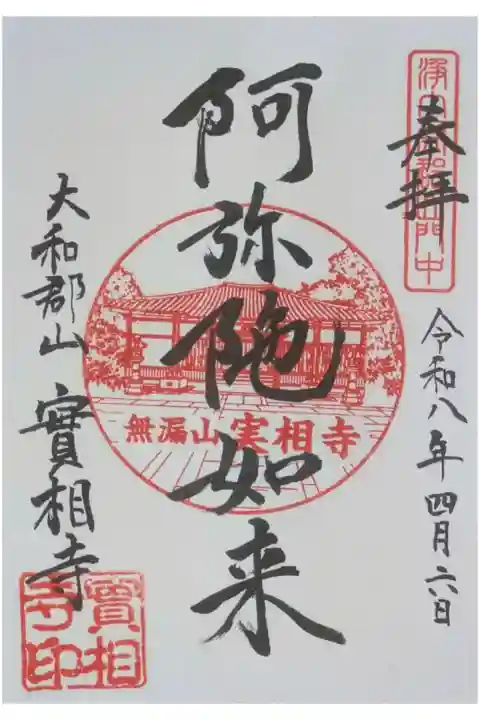 奉拝
令和八年四月六日
阿弥陀如来
無漏山実相寺
大和郡山 實相寺
實相
寺印